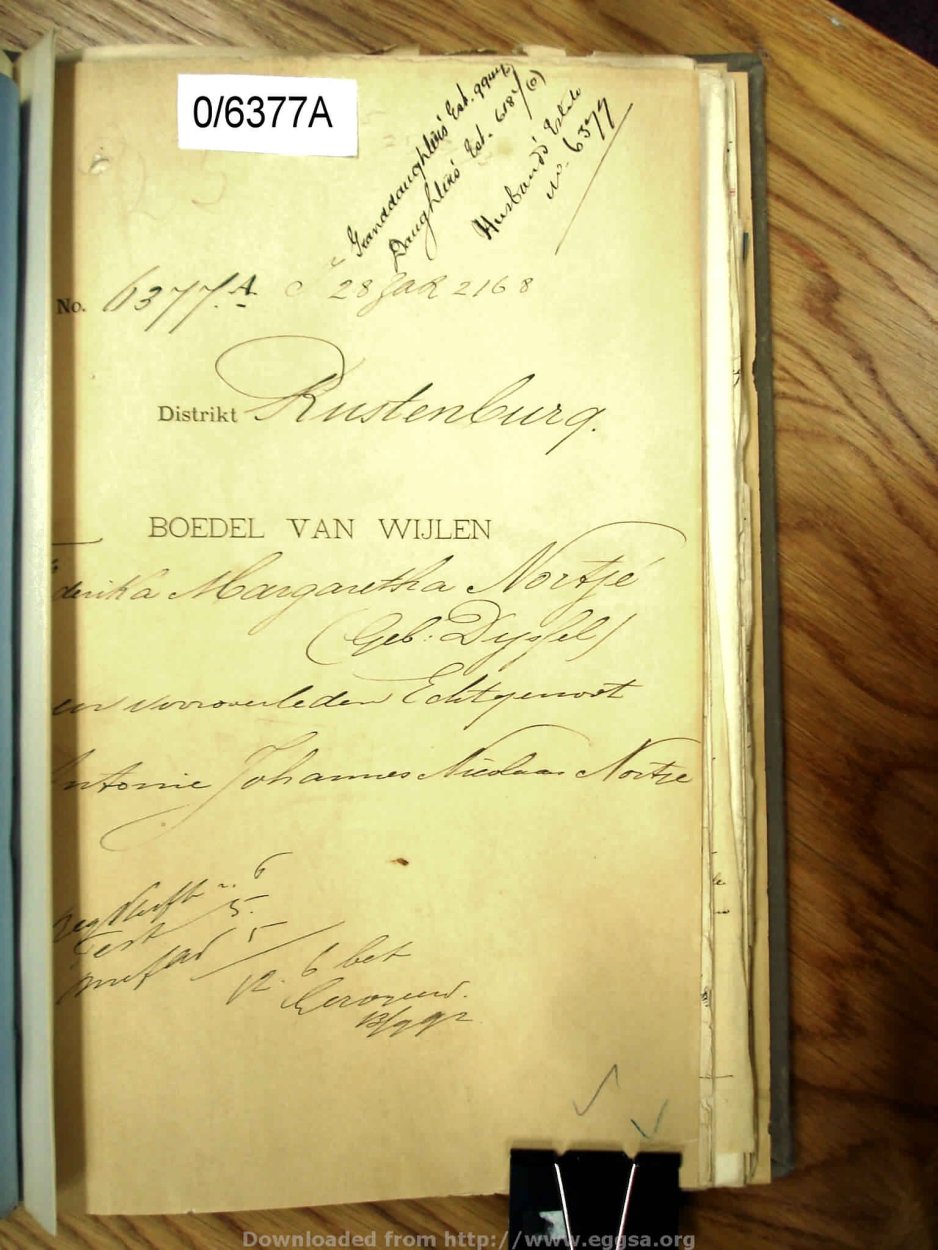 0/6377A
Granddaughters' Est.
Daughters' Est. 6181/(0)
Husband's Estate
No. 6377
No. 6377.A 28 Jak 2168
Distrikt Rustenburg.
BOEDEL VAN WIJLEN
derika Margaretha Nortjé
(Geb: Dyssel)
en vooroverleden Echtgenoot
ntonie Johannes Nicolaas Nortje
6
Test 5.
5
12. 6 bet
Downloaded from http://www.eggsa.org